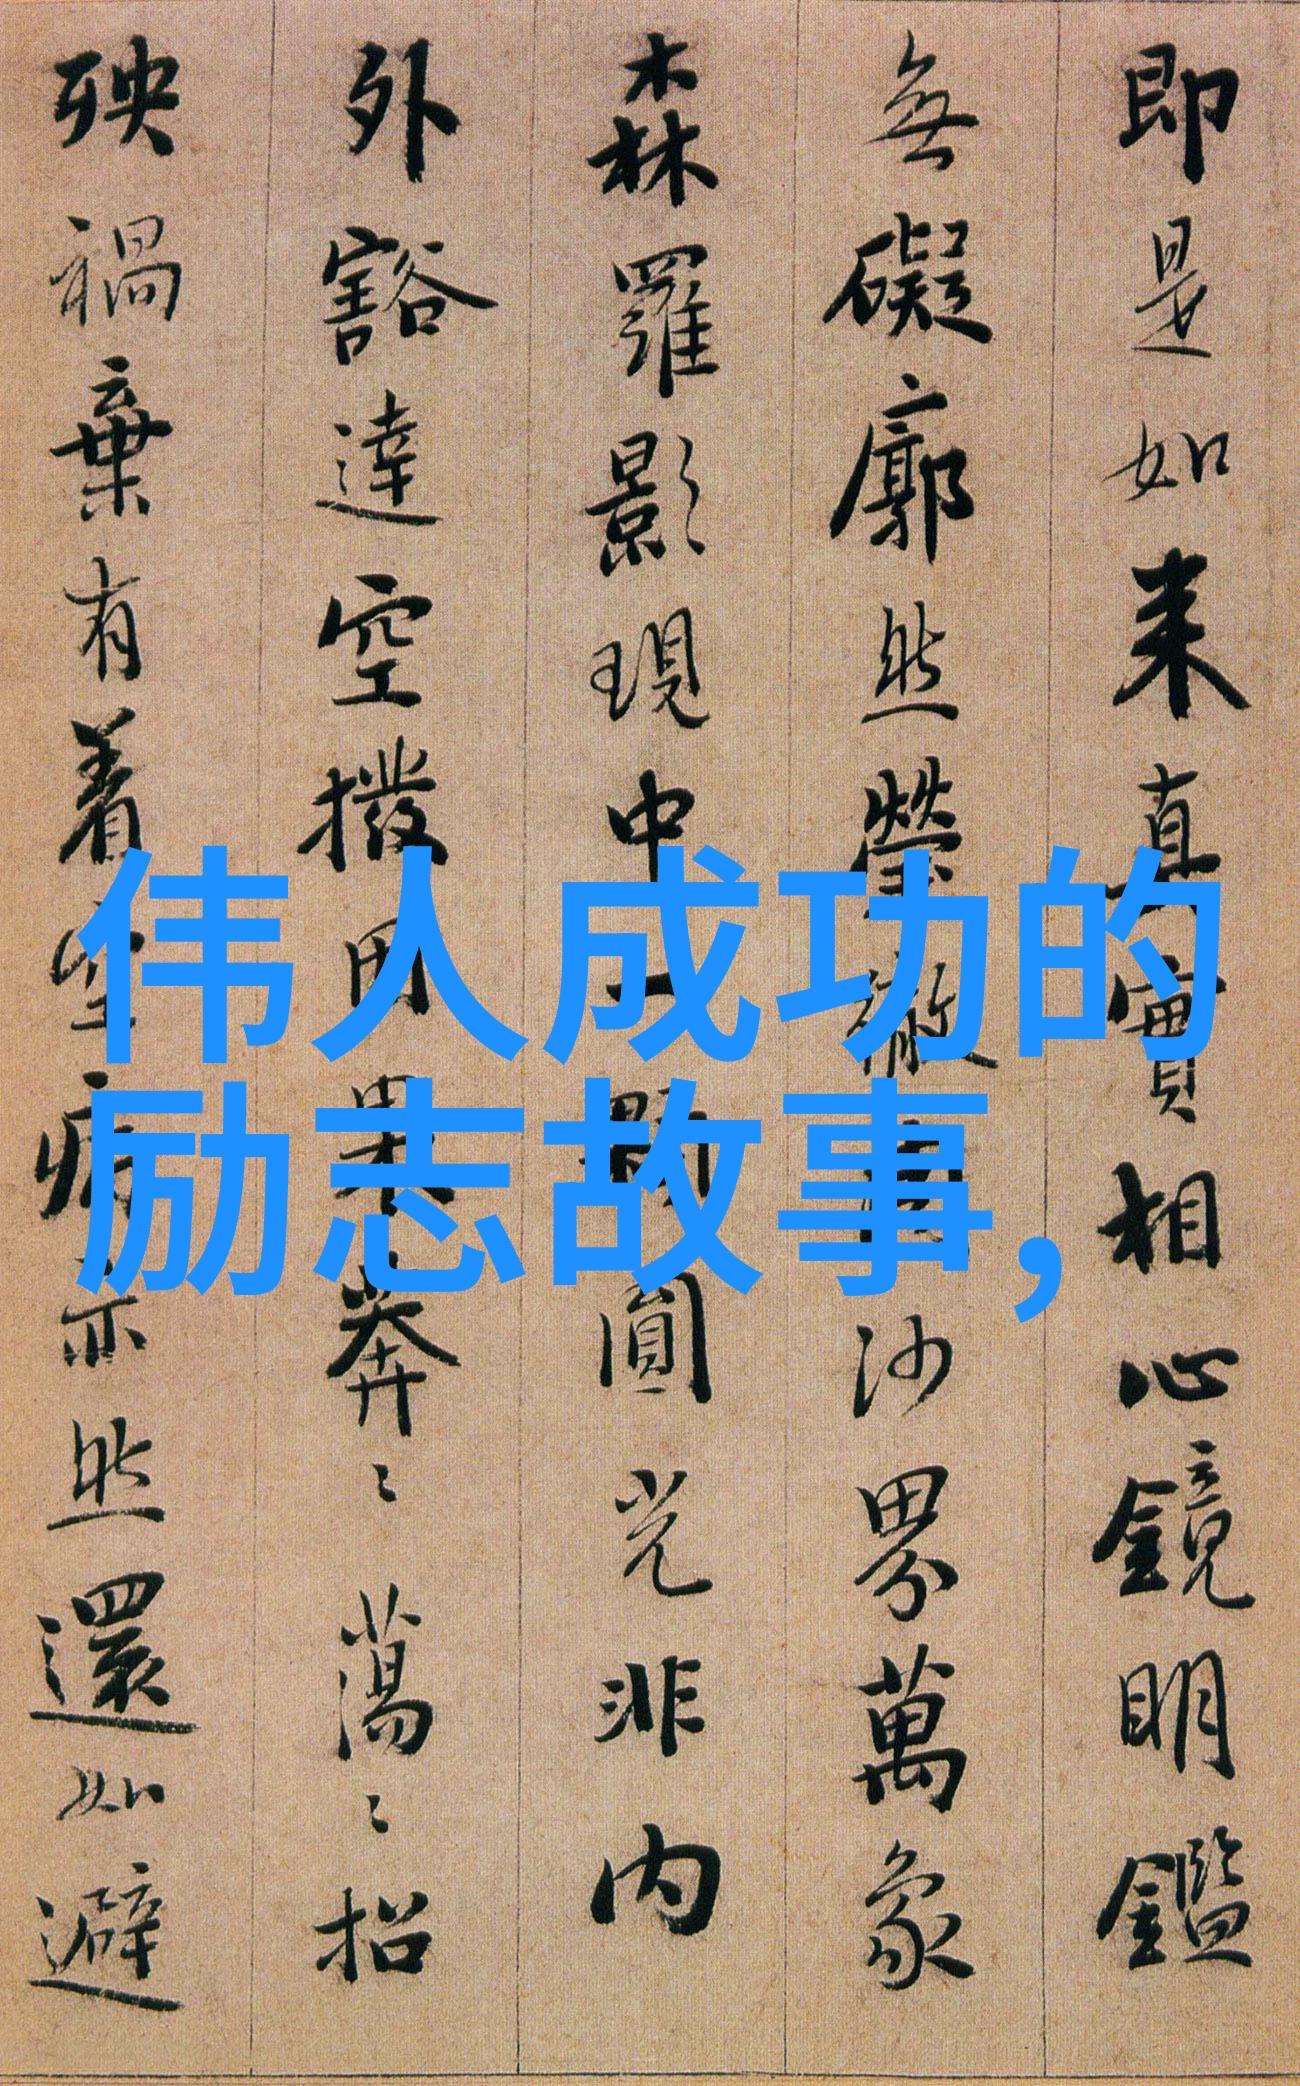 即是如来真實相心鏡明鑑
無礙廓然瑩徹沙界萬象
森羅影現中一顆圓光非内
外豁達空撥因果莽〻蕩〻招
殃禍棄有着空病亦然還如避
伟人成功的
励志故事,